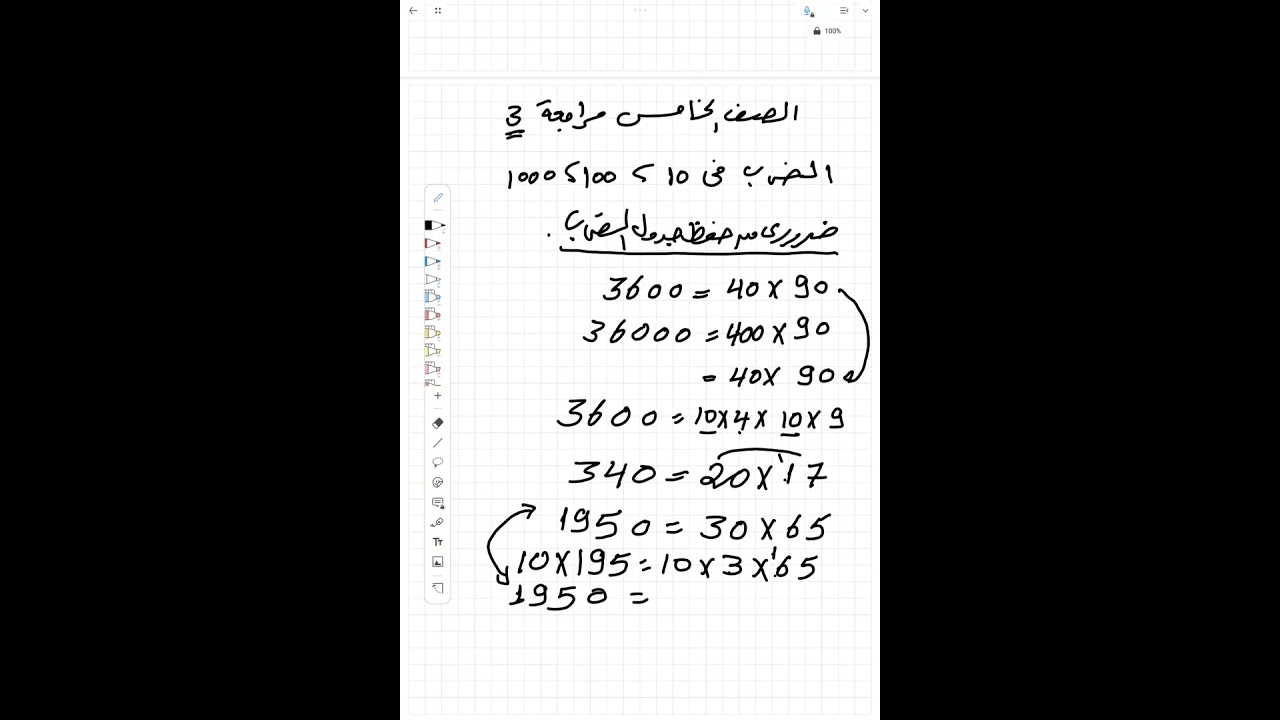 100%
الصف الخامس مراجعة 3
الضرب فى 10 ، 100 ، 1000
ضرورى من حفظ جدول الضرب .
3600 = 40 x 90
36000 = 400 x 90
= 40 x 90
3600 = 10 x 4 x 10 x 9
340 = 20 x 17
1950 = 30 x 65
10 x 195 = 10 x 3 x 65
1950 =
Tt